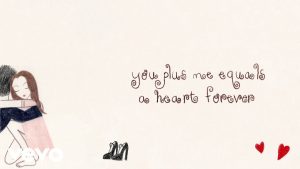 you plus me equals
a heart forever
vevo